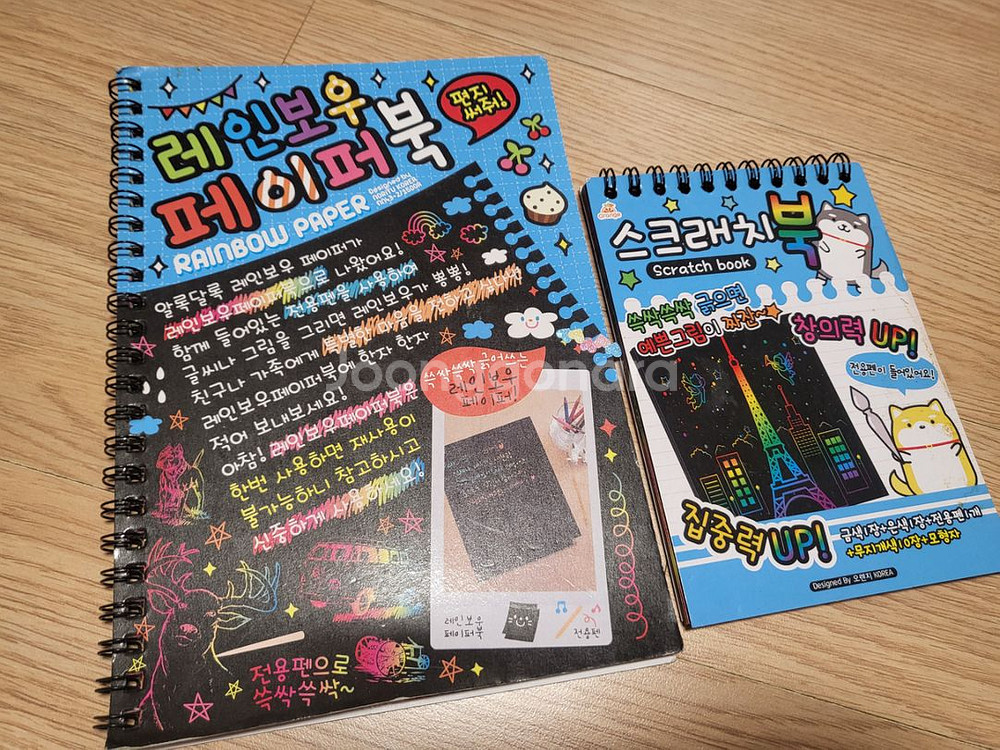 레인보우
페이퍼북
편지
써줘!
RAINBOW PAPER
Designed by
알록달록 레인보우 페이퍼가
레인보우페이퍼북으로 나왔어요!
함께 들어있는 전용펜을 사용하여
글씨나 그림을 그리면 레인보우가 뿅뿅!
친구나 가족에게 특별한 마음을 전하고 싶다면
레인보우페이퍼북에 한자 한자
적어 보내보세요!
아참! 레인보우페이퍼북은
한번 사용하면 재사용이
불가능하니 참고하시고
신중하게 사용하세요!
쓱싹쓱싹 긁어쓰는
레인보우
페이퍼!
레인보우
페이퍼북
전용펜
전용펜으로
쓱싹쓱싹~
Joongonara
Orange
스크래치북
Scratch book
쓱싹쓱싹 긁으면
예쁜그림이 짜잔~
창의력 UP!
전용펜이 들어있어요!
집중력 UP!
금색1장+은색1장+전용펜1개
+무지개색10장+모형자
Designed By 오렌지 KOREA